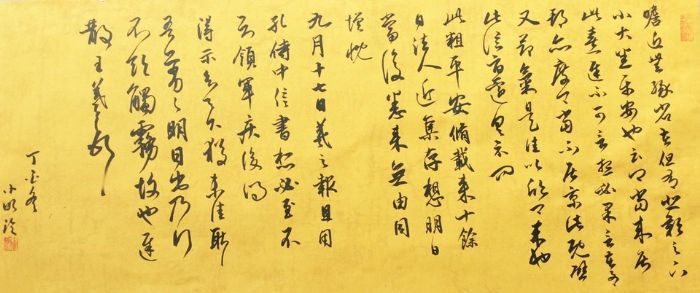 瞻近無緣省苦但有悲歎足下
小大悉平安也云卿當來居
此喜遲不可言想必果言告有
期亦度卿當不居京此既避
又節氣是佳以欣卿來也
此信旨還具示問
此粗平安脩載來十餘
日諸人近集存想明日
當復悉來無由同
增慨
九月十七日羲之報且因
孔侍中信書想必至不
知領軍疾後問
得示知足下猶未佳耿
吾劣々明日出乃行
不欲觸霧故也遲
散王羲之頓首
丁酉冬